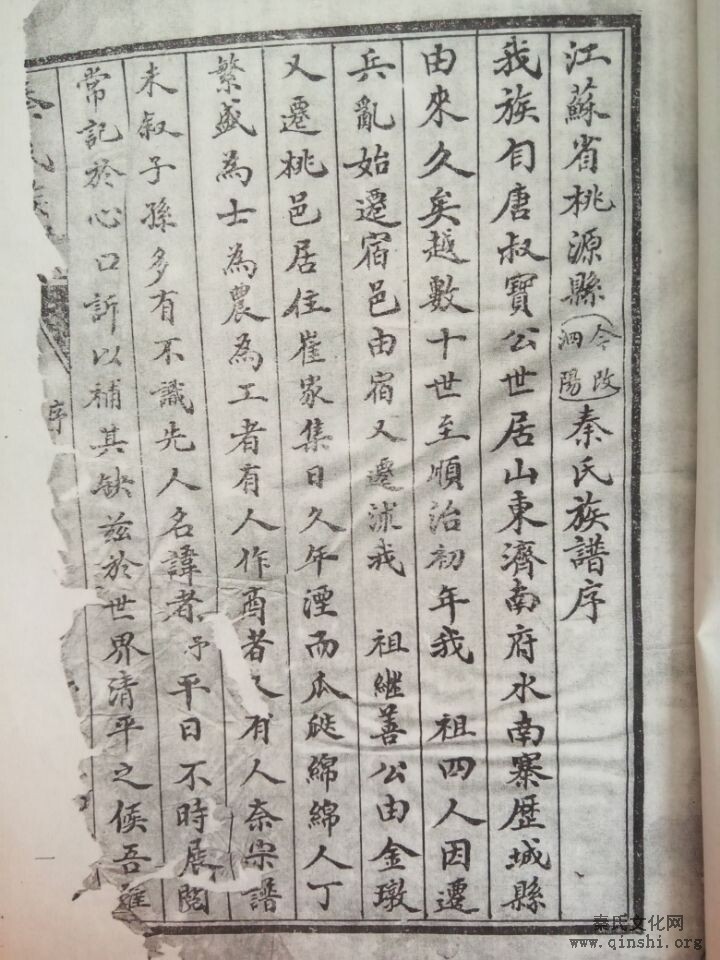 江蘇省桃源縣今改泗陽秦氏族譜序
我族自唐叔寶公世居山東濟南府水南寨歷城縣
由來久矣越數十世至順治初年我 祖四人因遷
兵亂始遷宿邑由宿又遷沭我 祖繼善公由金墩
又遷桃邑居住崔家集日久年湮而瓜瓞綿綿人丁
繁盛為士為農為工者有人作酉者又有人奈宗譜
未敘子孫多有不識先人名諱者予平日不時展閱
常記於心口訴以補其缺兹於世界清平之候吾
秦氏族
序
秦氏文化网
www.qinshi.org